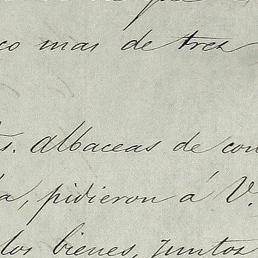 co mas de tres
s. albaceas de con
a, pidieron á V.
los bienes, juntos